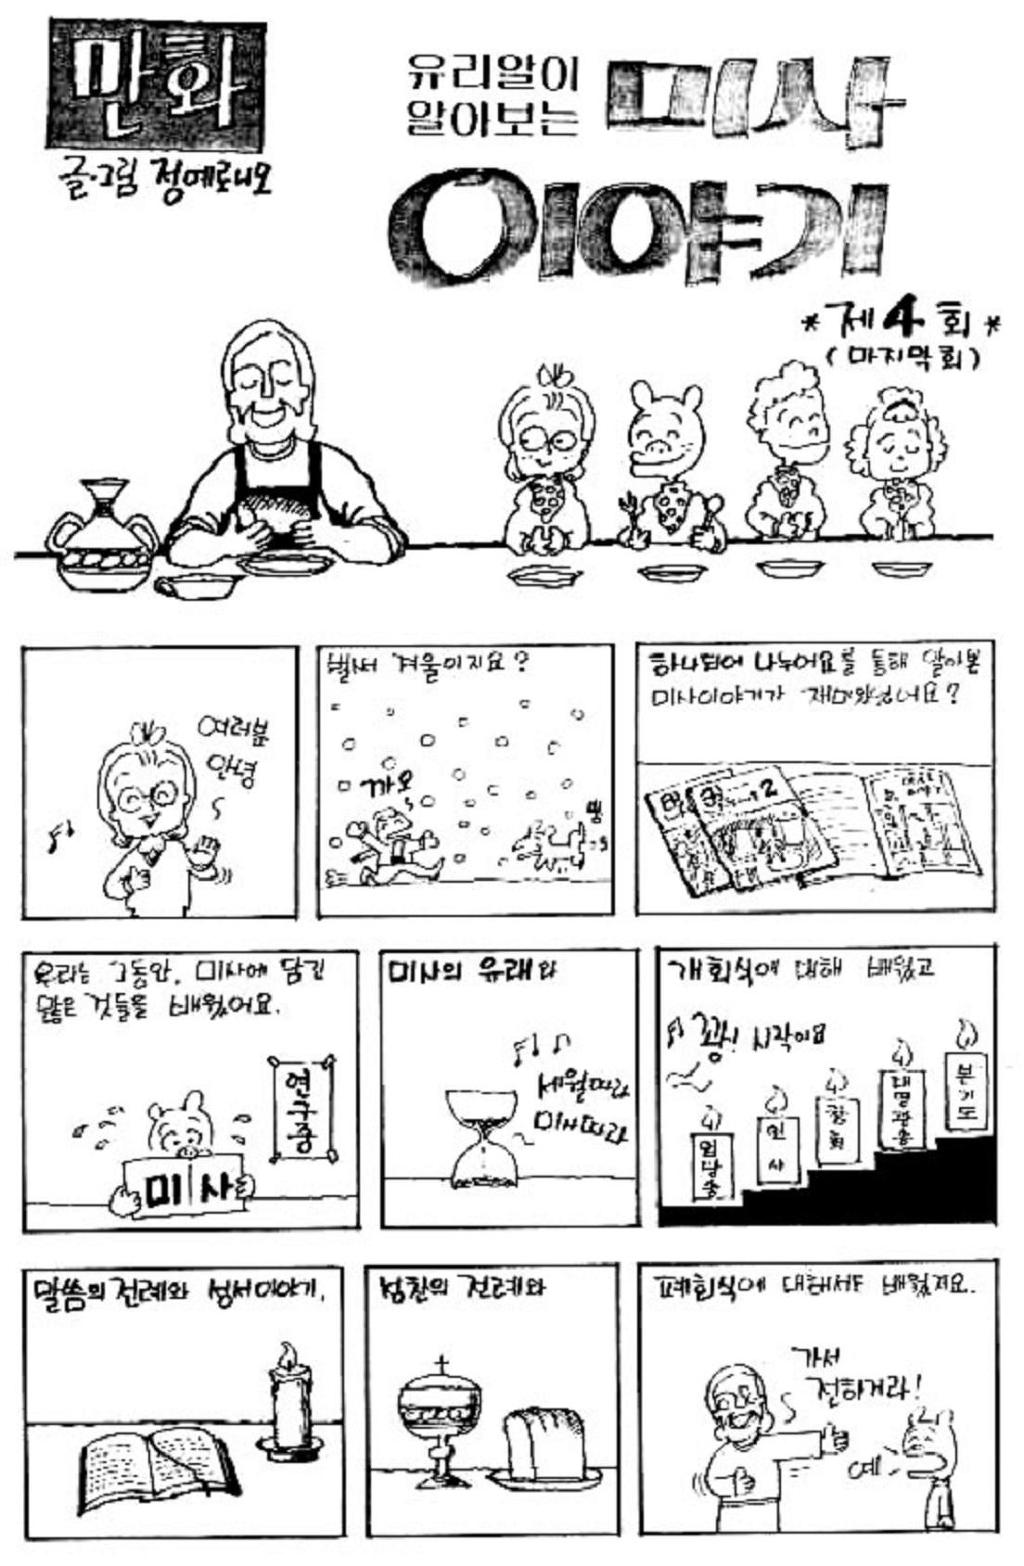 만화
글·그림 정예로니모
유리알이
알아보는 미사
이야기
*제4회*
(마지막회)
여러분
안녕
벌써 겨울이지요?
까오
멍
하나되어 나누어요를 통해 알아본
미사이야기가 재미있었어요?
2
우리는 그동안, 미사에 담긴
많은 것들을 배웠어요.
연구중
미사
미사의 유래와
세월따라
미사따라
개회식에 대해 배웠고
꽝! 시작이요
입당송
인사
참회
대영광송
본기도
말씀의 전례와 성서이야기,
성찬의 전례와
폐회식에 대해서도 배웠지요.
가서
전하거라!
예